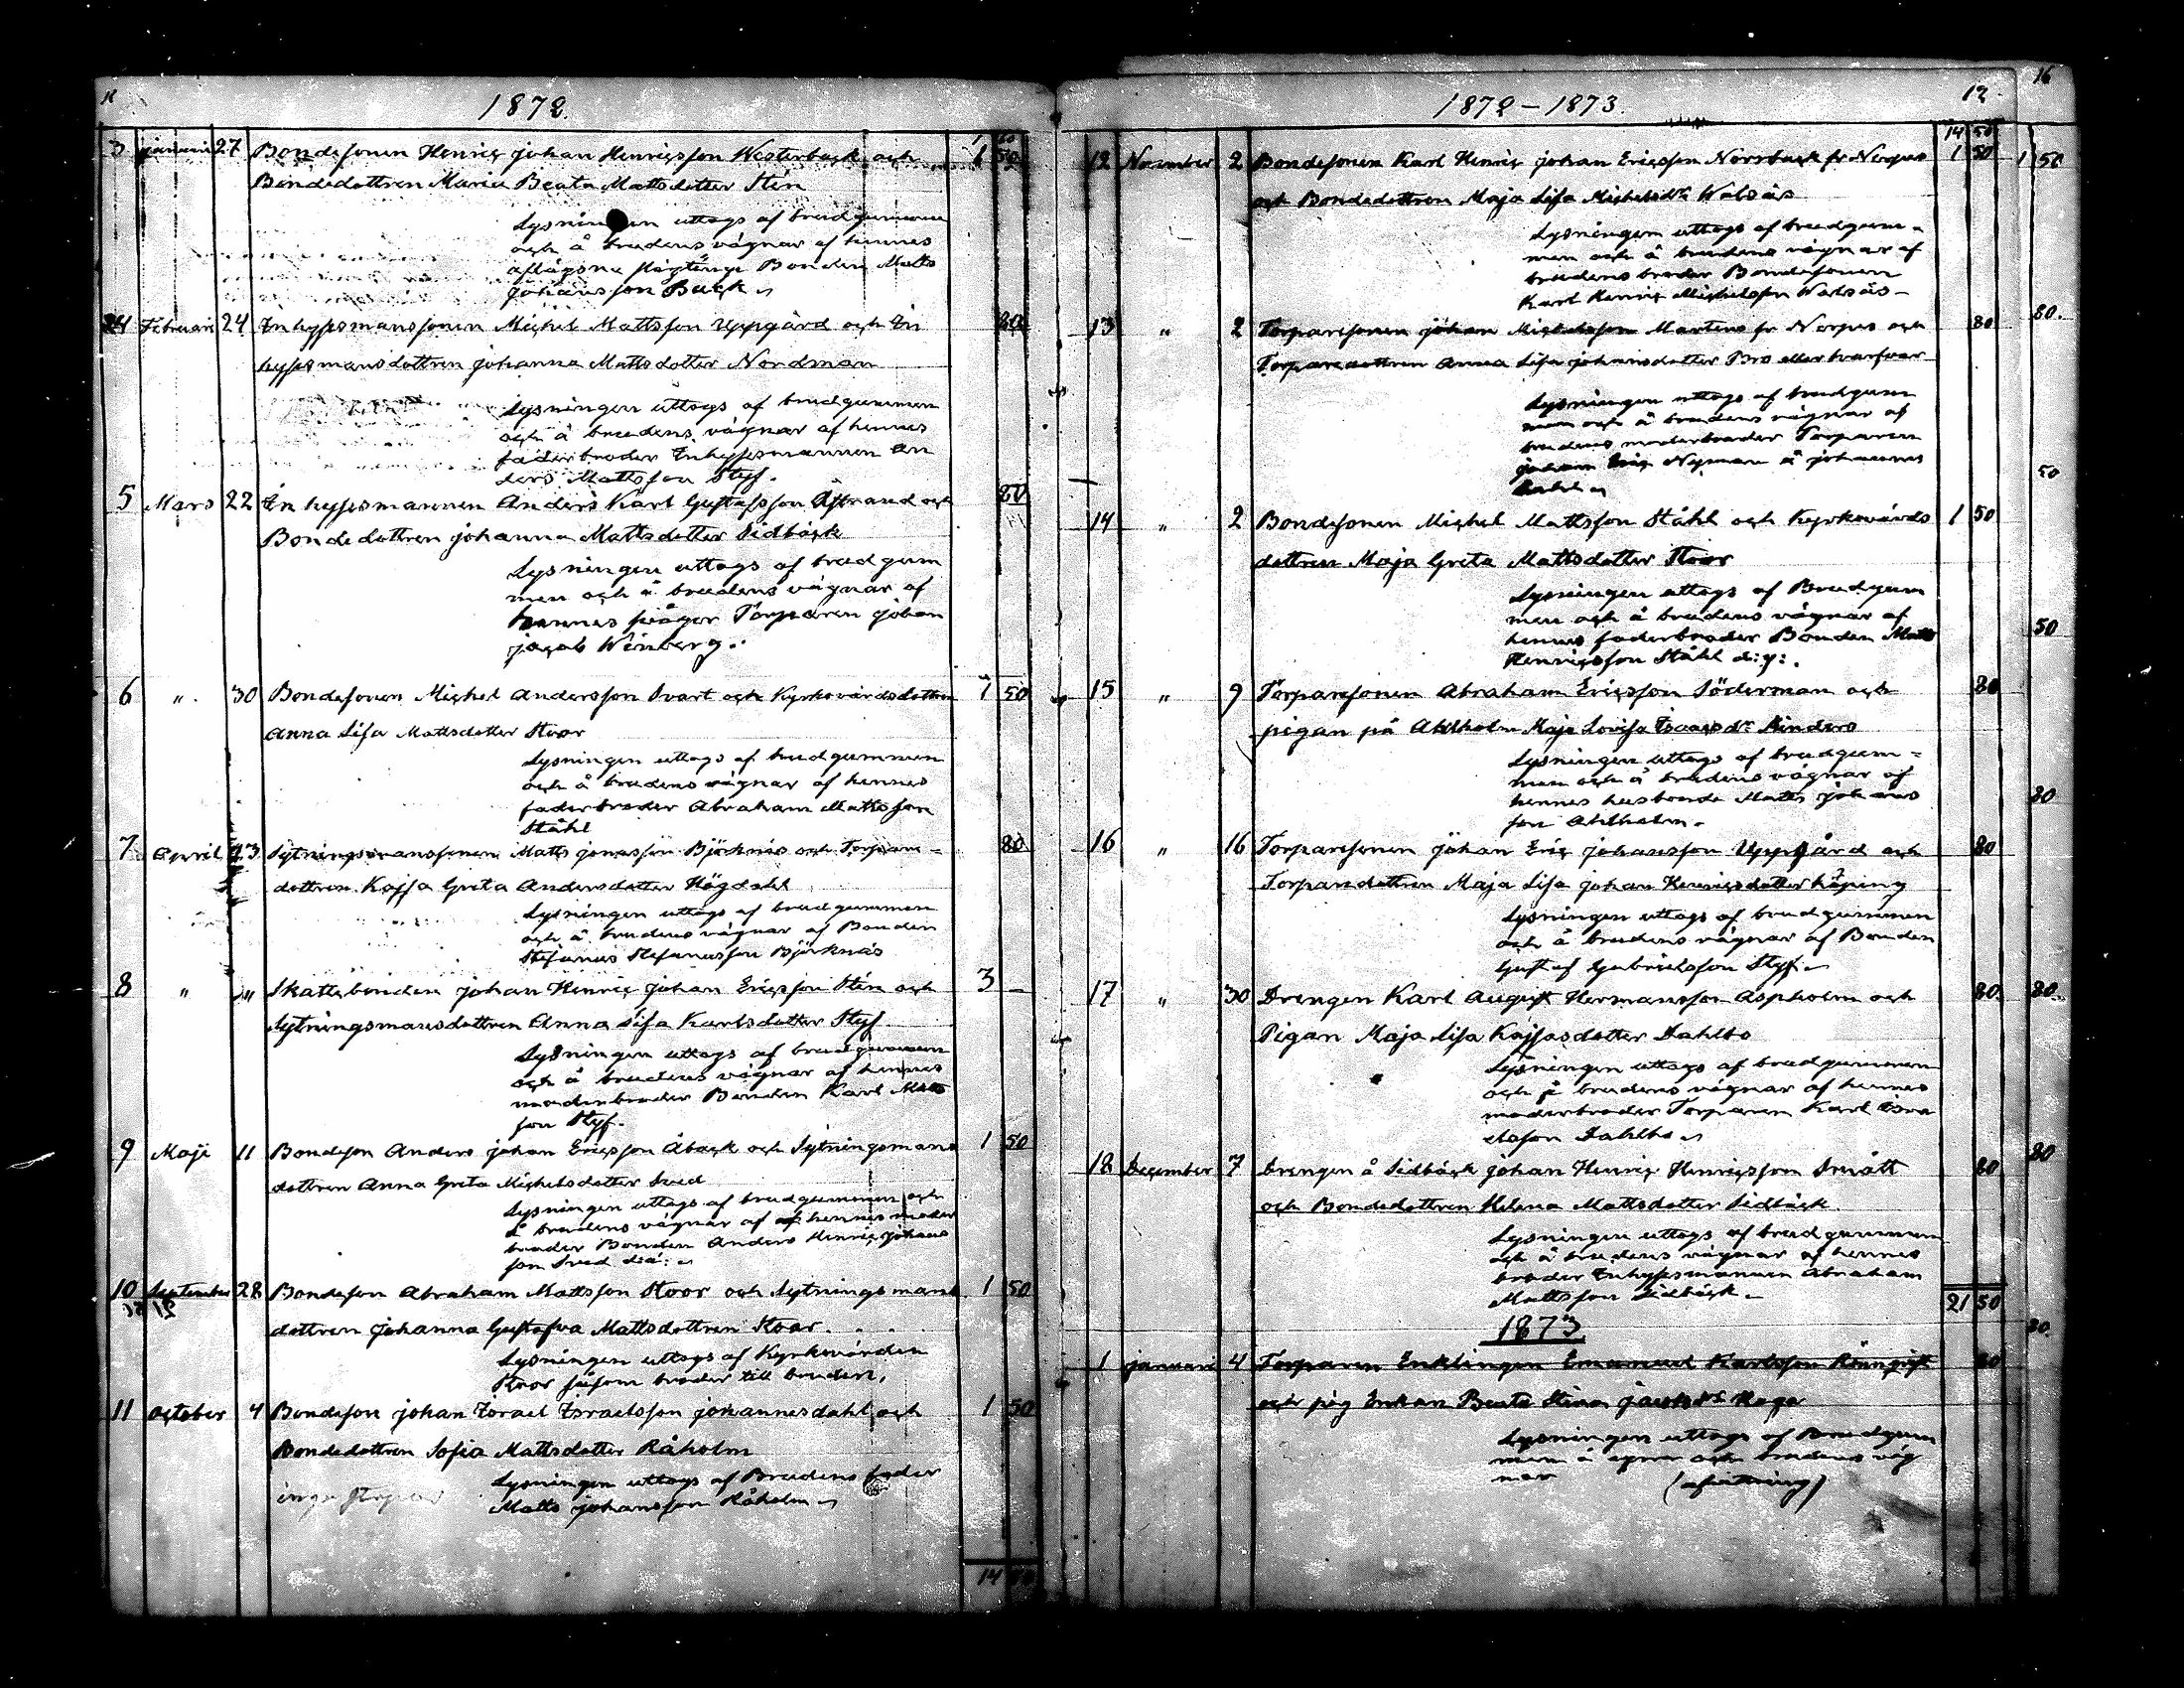 1872.
1 60
3 januari 27 Bondesonen Henric johan Henricsson Westerback och 1 50
Bondedottren Maria Beata Mattsdotter Sten
Lysningen uttogs af brudgummen
och å brudens vägnar af hennes
aflägsne slägtinge Bonden Matts
johansson Back
4 Februari 24 Inhysesmanssonen Michel Mattsson Uppgård och In 80
hysesmansdottren johanna Mattsdotter Nordman
Lysningen uttogs af brudgummen
och å brudens vägnar af hennes
faderbroder Inhysesmannen An
ders Mattsson Styf.
5 Mars 22 Inhysesmannen Anders Karl Gustafsson Åstrand och 80
Bondedottren johanna Mattsdotter Sidbäck
Lysningen uttogs af brudgum
men och å brudens vägnar af
hennes svåger Torparen johan
jacob Wenberg.
6 " 30 Bondesonen Michel Andersson Svart och Kyrkovärdsdottren 1 50
Anna Lisa Mattsdotter Stoor
Lysningen uttogs af brudgummen
och å brudens vägnar af hennes
faderbroder Abraham Mattsson
Ståhl
7 April 13 Sytningsmanssonen Matts jonasson Björknäs och Torpare- 80
dottren Kajsa Greta Andersdotter Högdahl
Lysningen uttogs af brudgummen
och å brudens vägnar af Bonden
Stefanus Stefanusson Björknäs
8 " " Skattebonden johan Henric johan Ericsson Sten och 3 —
Sytningsmansdottren Anna Lisa Karlsdotter Styf.
Lysningen uttogs af brudgummen
och å brudens vägnar af hennes
moderbroder Bonden Karl Matts
son Styf.
9 Maji 11 Bondeson Anders johan Ericsson Åback och Sytningsmans 1 50
dottren Anna Greta Michelsdotter Sved
Lysningen uttogs af brudgummen och
å brudens vägnar af af hennes moder
broder Bonden Anders Henric johans
son Sved
10 September 28 Bondeson Abraham Mattsson Stoor och Sytningsmans 1 50
dottren johanna Gustafva Mattsdottren Stoor.
Lysningen uttogs af Kyrkovärden
Stoor såsom broder till bruden.
11 October 4 Bondeson johan Israel Israelsson johannesdahl och 1 50
Bondedottren Sofia Mattsdotter Råholm
Lysningen uttogs af Brudens fader
Matts johansson Råholm
14
1872 – 1873.
12.
16
14 50
12 November 2 Bondesonen Karl Henric johan Ericsson Norrback fr Nerpes 1 50 1 50
och Bondedottren Maja Lisa Michelsdr Walsäs
Lysningen uttogs af brudgum-
men och å brudens vägnar af
brudens broder Bondesonen
Karl Henric Michelsson Walsäs –
13 " 2 Torparesonen johan Michelsson Martens fr Nerpes och 80 80.
Torparedottren Anna Lisa johansdotter Bro eller Svarfvar
Lysningen uttogs af brudgum
men och å brudens vägnar af
brudens moderbroder Torparen
johan Eric Nyman å johannes
dahl 50
14 " 2 Bondesonen Michel Mattsson Ståhl och Kyrkovärds 1 50
dottren Maja Greta Mattsdotter Stoor
Lysningen uttogs af Brudgum
men och å brudens vägnar af
hennes faderbroder Bonden Matts 50
Henricsson Ståhl d:y:.
15 " 9 Torparesonen Abraham Ericsson Söderman och 80
pigan på Ahlholm Maja Lovisa Isaacsdr Kinders
Lysningen uttogs af brudgum-
men och å brudens vägnar af
hennes husbonde Matts johans 80
son Ahlholm.
16 " 16 Torparesonen johan Eric johansson Uppgård och 80
Torparedottren Maja Lisa johan Henricsdotter Köping
Lysningen uttogs af brudgummen
och å brudens vägnar af Bonden
Gustaf Gabrielsson Styf.
17 " 30 Drengen Karl August Hermansson Aspholm och 80 80.
Pigan Maja Lisa Kajsasdotter Dahlbo
Lysningen uttogs af brudgummen
och å brudens vägnar af hennes
moderbroder Torparen Karl Isra
elsson Dahlbo
18 December 7 Drengen å Sidbäck johan Henric Henricsson Smått 80 80
och Bondedottren Helena Mattsdotter Sidbäck.
Lysningen uttogs af brudgummen
och å brudens vägnar af hennes
broder Inhysesmannen Abraham
Mattsson Sidbäck.
21 50
1873
1 januari 4 Torparen Enklingen Emanuel Karlsson Rönnqvist 80
och pig Enkan Beata Stina jacobsdr Haga
Lysningen uttogs af Brudgum
men å egna och brudens väg
nar (afvittring)